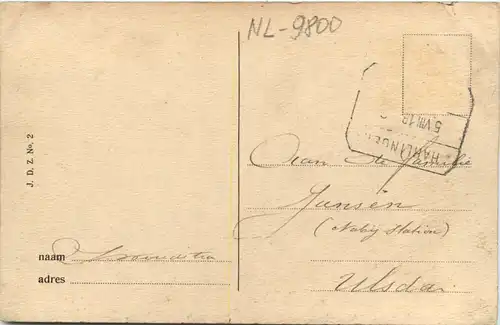 NL-9800
HARLINGEN
5 VIII 18
J. D. Z. No. 2
Aan de Familie
Jansen
(nabij Station)
Ulsda.
naam
adres